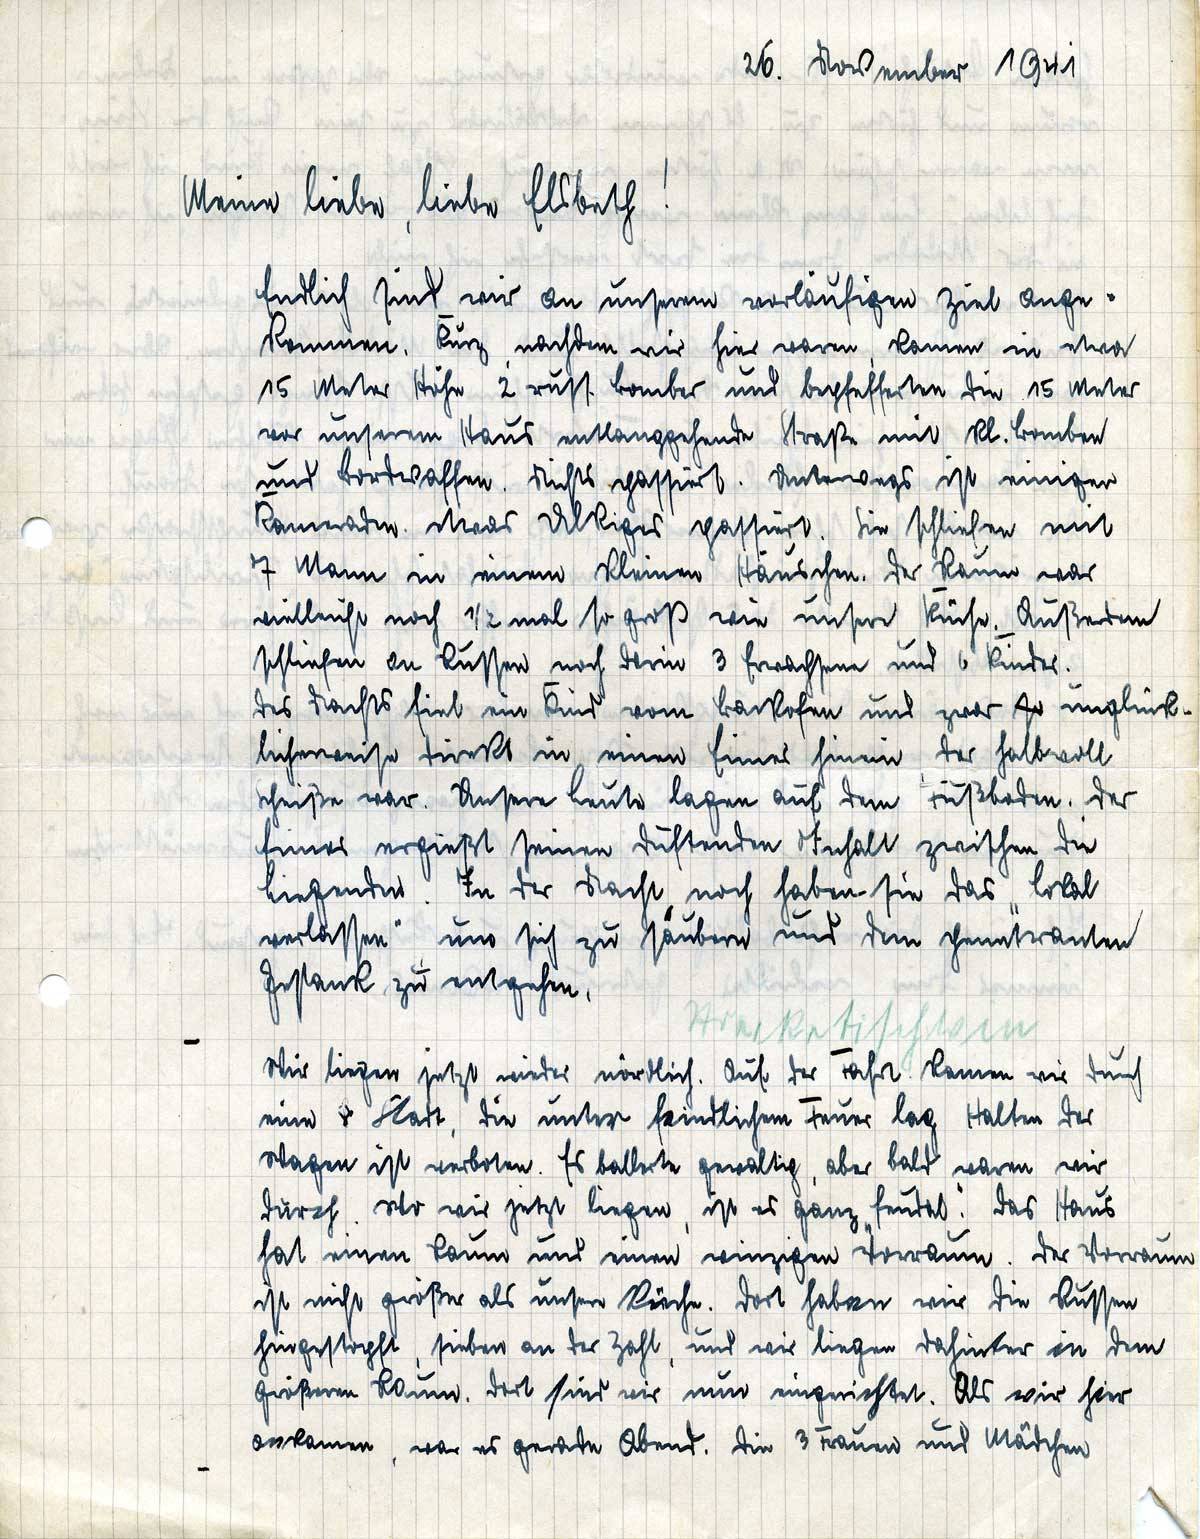 26. November 1941
Meine liebe, liebe Elsbeth!
Endlich sind wir an unserem vorläufigen Ziel ange-
kommen. Kurz nachdem wir hier waren, kamen in etwa
15 Meter Höhe 2 russ. Bomber und bepfefferten die 15 Meter
vor unserem Haus entlanggehende Straße mit kl. Bomben
und Bordwaffen. Nichts passiert. Unterwegs ist einigen
Kameraden etwas Ulkiges passiert. Sie schliefen mit
7 Mann in einem kleinen Häuschen. Der Raum war
vielleicht noch 1/2 mal so groß wie unsere Küche. Außerdem
schliefen an Russen noch darin 3 Erwachsene und 6 Kinder.
Des Nachts fiel ein Kind vom Backofen und zwar unglück-
licherweise direkt in einen Eimer hinein der halbvoll
Scheiße war. Unsere Leute lagen auf dem Fußboden. Der
Eimer ergießt seinen duftenden Inhalt zwischen die
Liegenden. In der Nacht noch haben sie das „Lokal
verlassen“ um sich zu säubern und dem penetranten
Gestank zu entgehen.
Wir liegen jetzt wieder nördlich. Auf der Fahrt kamen wir durch
eine Stadt, die unter feindlichem Feuer lag Halten der
Wagen ist verboten. Es ballerte gewaltig, aber bald waren wir
durch. Wo wir jetzt liegen, ist es ganz „feudal“. Das Haus
hat einen Raum und einen winzigen Vorraum. Der Vorraum
ist nicht größer als unsere Küche. Dort haben wir die Russen
hingestopft, sieben an der Zahl, und wir liegen dahinter in dem
größeren Raum. Dort sind wir nun eingerichtet. Als wir hier
ankamen, war es gerade Abend. Die 3 Frauen und Mädchen